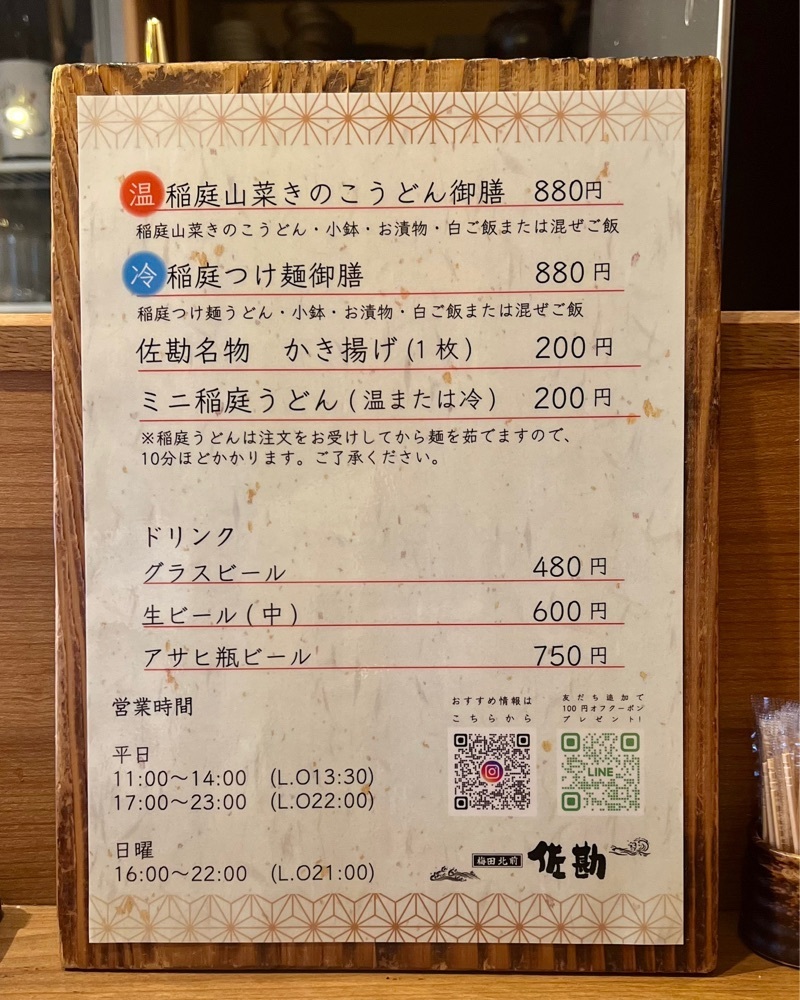 温 稲庭山菜きのこうどん御膳 880円
稲庭山菜きのこうどん・小鉢・お漬物・白ご飯または混ぜご飯
冷 稲庭つけ麺御膳 880円
稲庭つけ麺うどん・小鉢・お漬物・白ご飯または混ぜご飯
佐勘名物 かき揚げ(1枚) 200円
ミニ稲庭うどん(温または冷) 200円
※稲庭うどんは注文をお受けしてから麺を茹でますので、
10分ほどかかります。ご了承ください。
ドリンク
グラスビール 480円
生ビール(中) 600円
アサヒ瓶ビール 750円
営業時間
平日
11:00〜14:00 (L.O13:30)
17:00〜23:00 (L.O22:00)
日曜
16:00〜22:00 (L.O21:00)
おすすめ情報は
こちらから
友だち追加で
100円オフクーポン
プレゼント!
LINE
梅田北前 佐勘